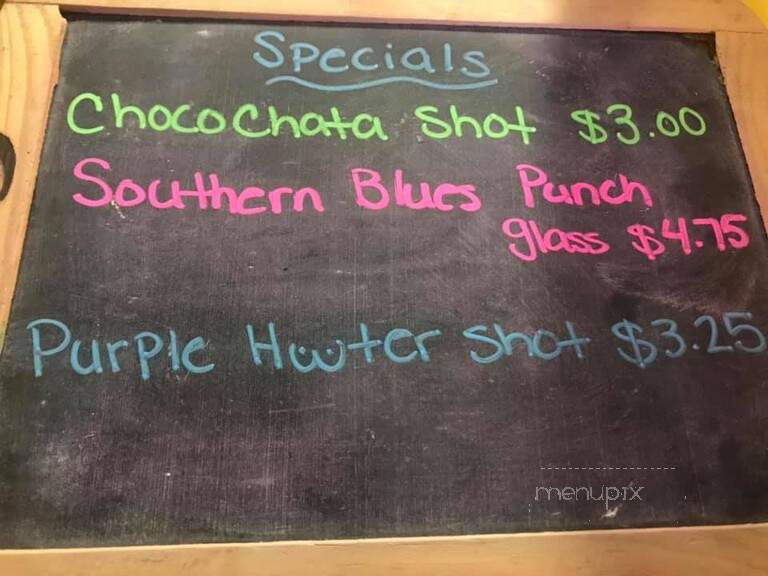 Specials
ChocoChata Shot $3.00
Southern Blues Punch
glass $4.75
Purple Hooter Shot $3.25
menupix